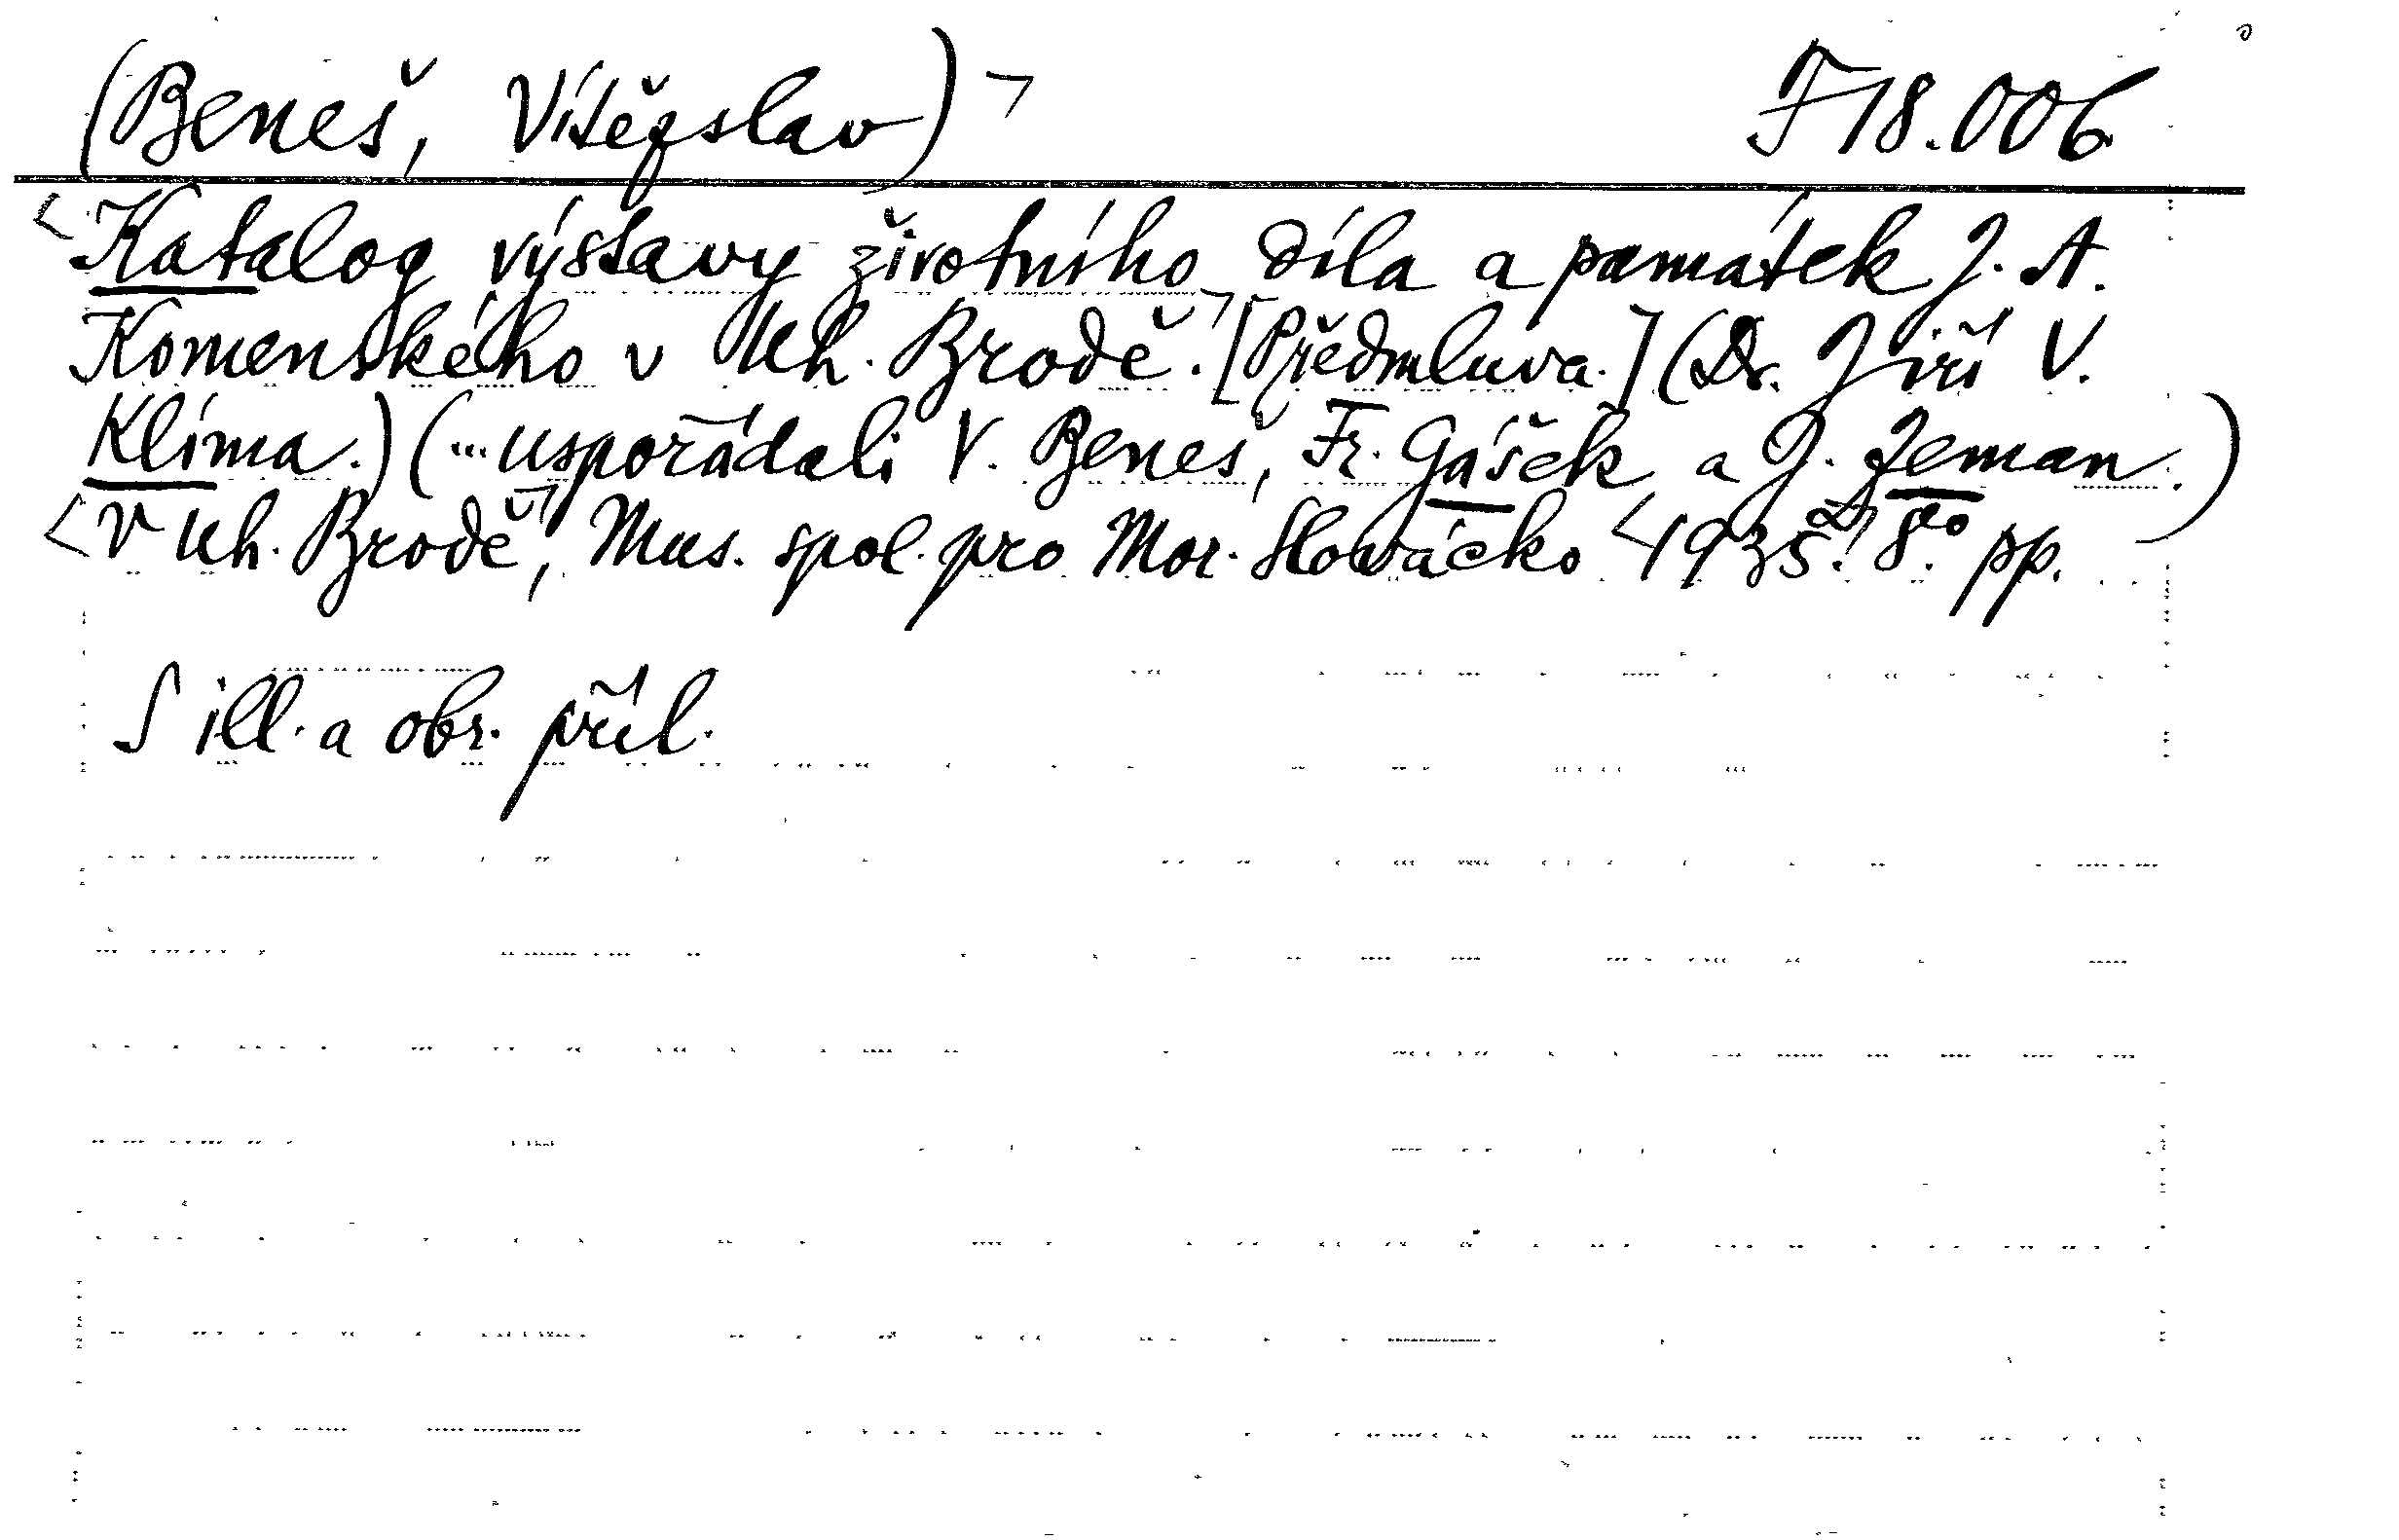 (Beneš, Vítězslav) ¬ F 18.006
<Katalog výstavy životního díla a památek J. A.
Komenského v Uh. Brodě.¬ [Předmluva.] (Dr. Jiří V.
Klíma.) (...uspořádali V. Beneš, Fr. Gášek a J. Zeman.)
<V Uh. Brodě¬, Mus. spol. pro Mor. Slovácko <1935.¬ 8° pp.
S ill. a obr. příl.